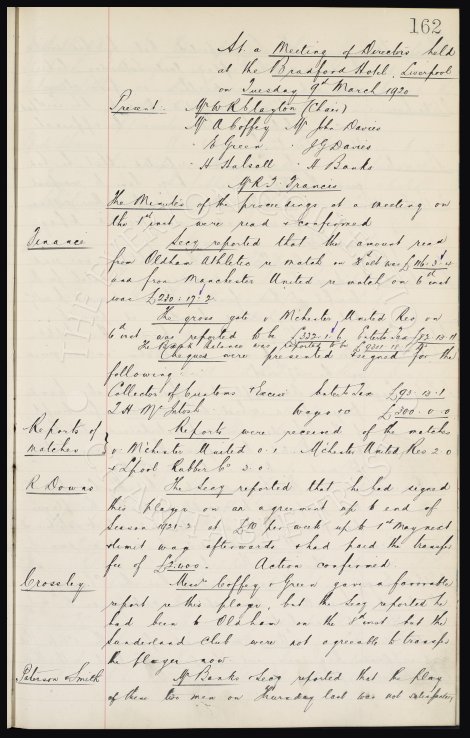 162
At a Meeting of Directors held
at the Bradford Hotel, Liverpool
on Tuesday 9th March 1920
Present. Mr W R Clayton (Chair)
Mr A Coffey Mr John Davies
" E Green " J G Davies
" H Halsall " A Banks
Mr R J Francis
The Minutes of the proceedings at a meeting on
the 1st inst were read & confirmed
Finance Secy reported that the amount recd
from Oldham Athletic re match on
and from Manchester United re match on 6th inst
was £230.17.2
The gross gate v M'chester United Res on
6th inst was reported to be £332.1.6 Entertn Tax
The Bank balance was reported to be
Cheques were presented & signed for the
following:
Collector of Customs & Excise Enterts Tax £93.13.1
T H McIntosh Wages &c £300.0.0
Reports of matches Reports were received of the matches
v. M'chester United 0.1. M'chester United Res 2.0
& L'pool Rubber Co 3.0.
R Downs The Secy reported that he had signed
this player on an agreement up to end of
Season 1921-2 at £10 per week up to 1st May next
& limit wage afterwards & had paid the transfer
fee of £2,000. Action confirmed.
Crossley Messrs Coffey & Green gave a favorable
report re this player, but the Secy reported he
had been to Oldham on the 1st inst but the
Sunderland Club were not agreeable to transfer
the player now
Paterson & Smith Mr Banks & Secy reported that the play
of these two men on Thursday last was not satisfactory,